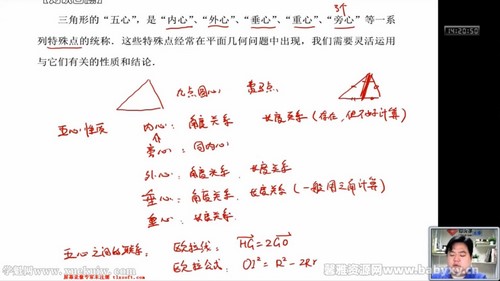 3个
三角形的“五心”，是“内心”、“外心”、“垂心”、“重心”、“旁心”等一系
列特殊点的统称．这些特殊点经常在平面几何问题中出现，我们需要灵活运
用与它们有关的性质和结论．
14:20:50
五心性质
内心：角度关系 长度关系（存在，但不好计算）
旁心：同内心
外心：角度关系 长度关系
垂心：角度关系．长度关系（一般用三角计算）
重心：长度关系
五心之间的联系：
欧拉线：HG=2GO
欧拉公式：OI²=R²-2Rr
学魁网 www.xuekuiw.com
馨雅资源网 www.babyxy.cn